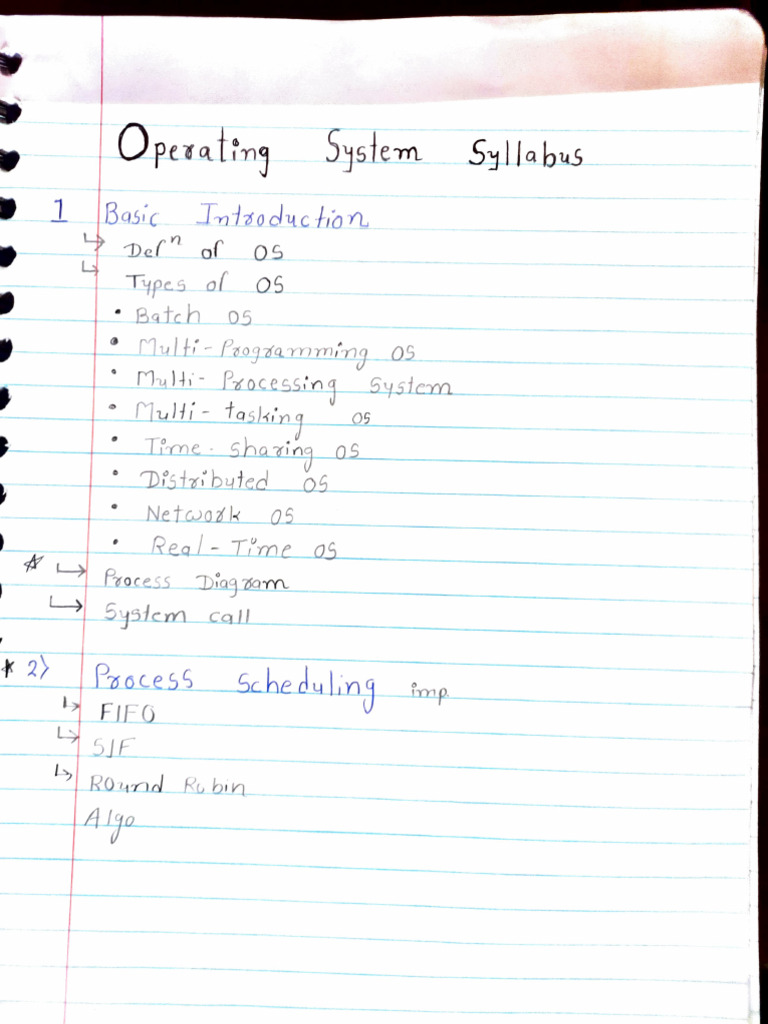 Operating System Syllabus
1 Basic Introduction
↳ Defⁿ of OS
↳ Types of OS
• Batch OS
• Multi-Programming OS
• Multi-Processing System
• Multi-tasking OS
• Time-sharing OS
• Distributed OS
• Network OS
• Real-Time OS
☆ ↳ Process Diagram
↳ System call
* 2) Process Scheduling imp.
↳ FIFO
↳ SJF
↳ Round Rubin
Algo